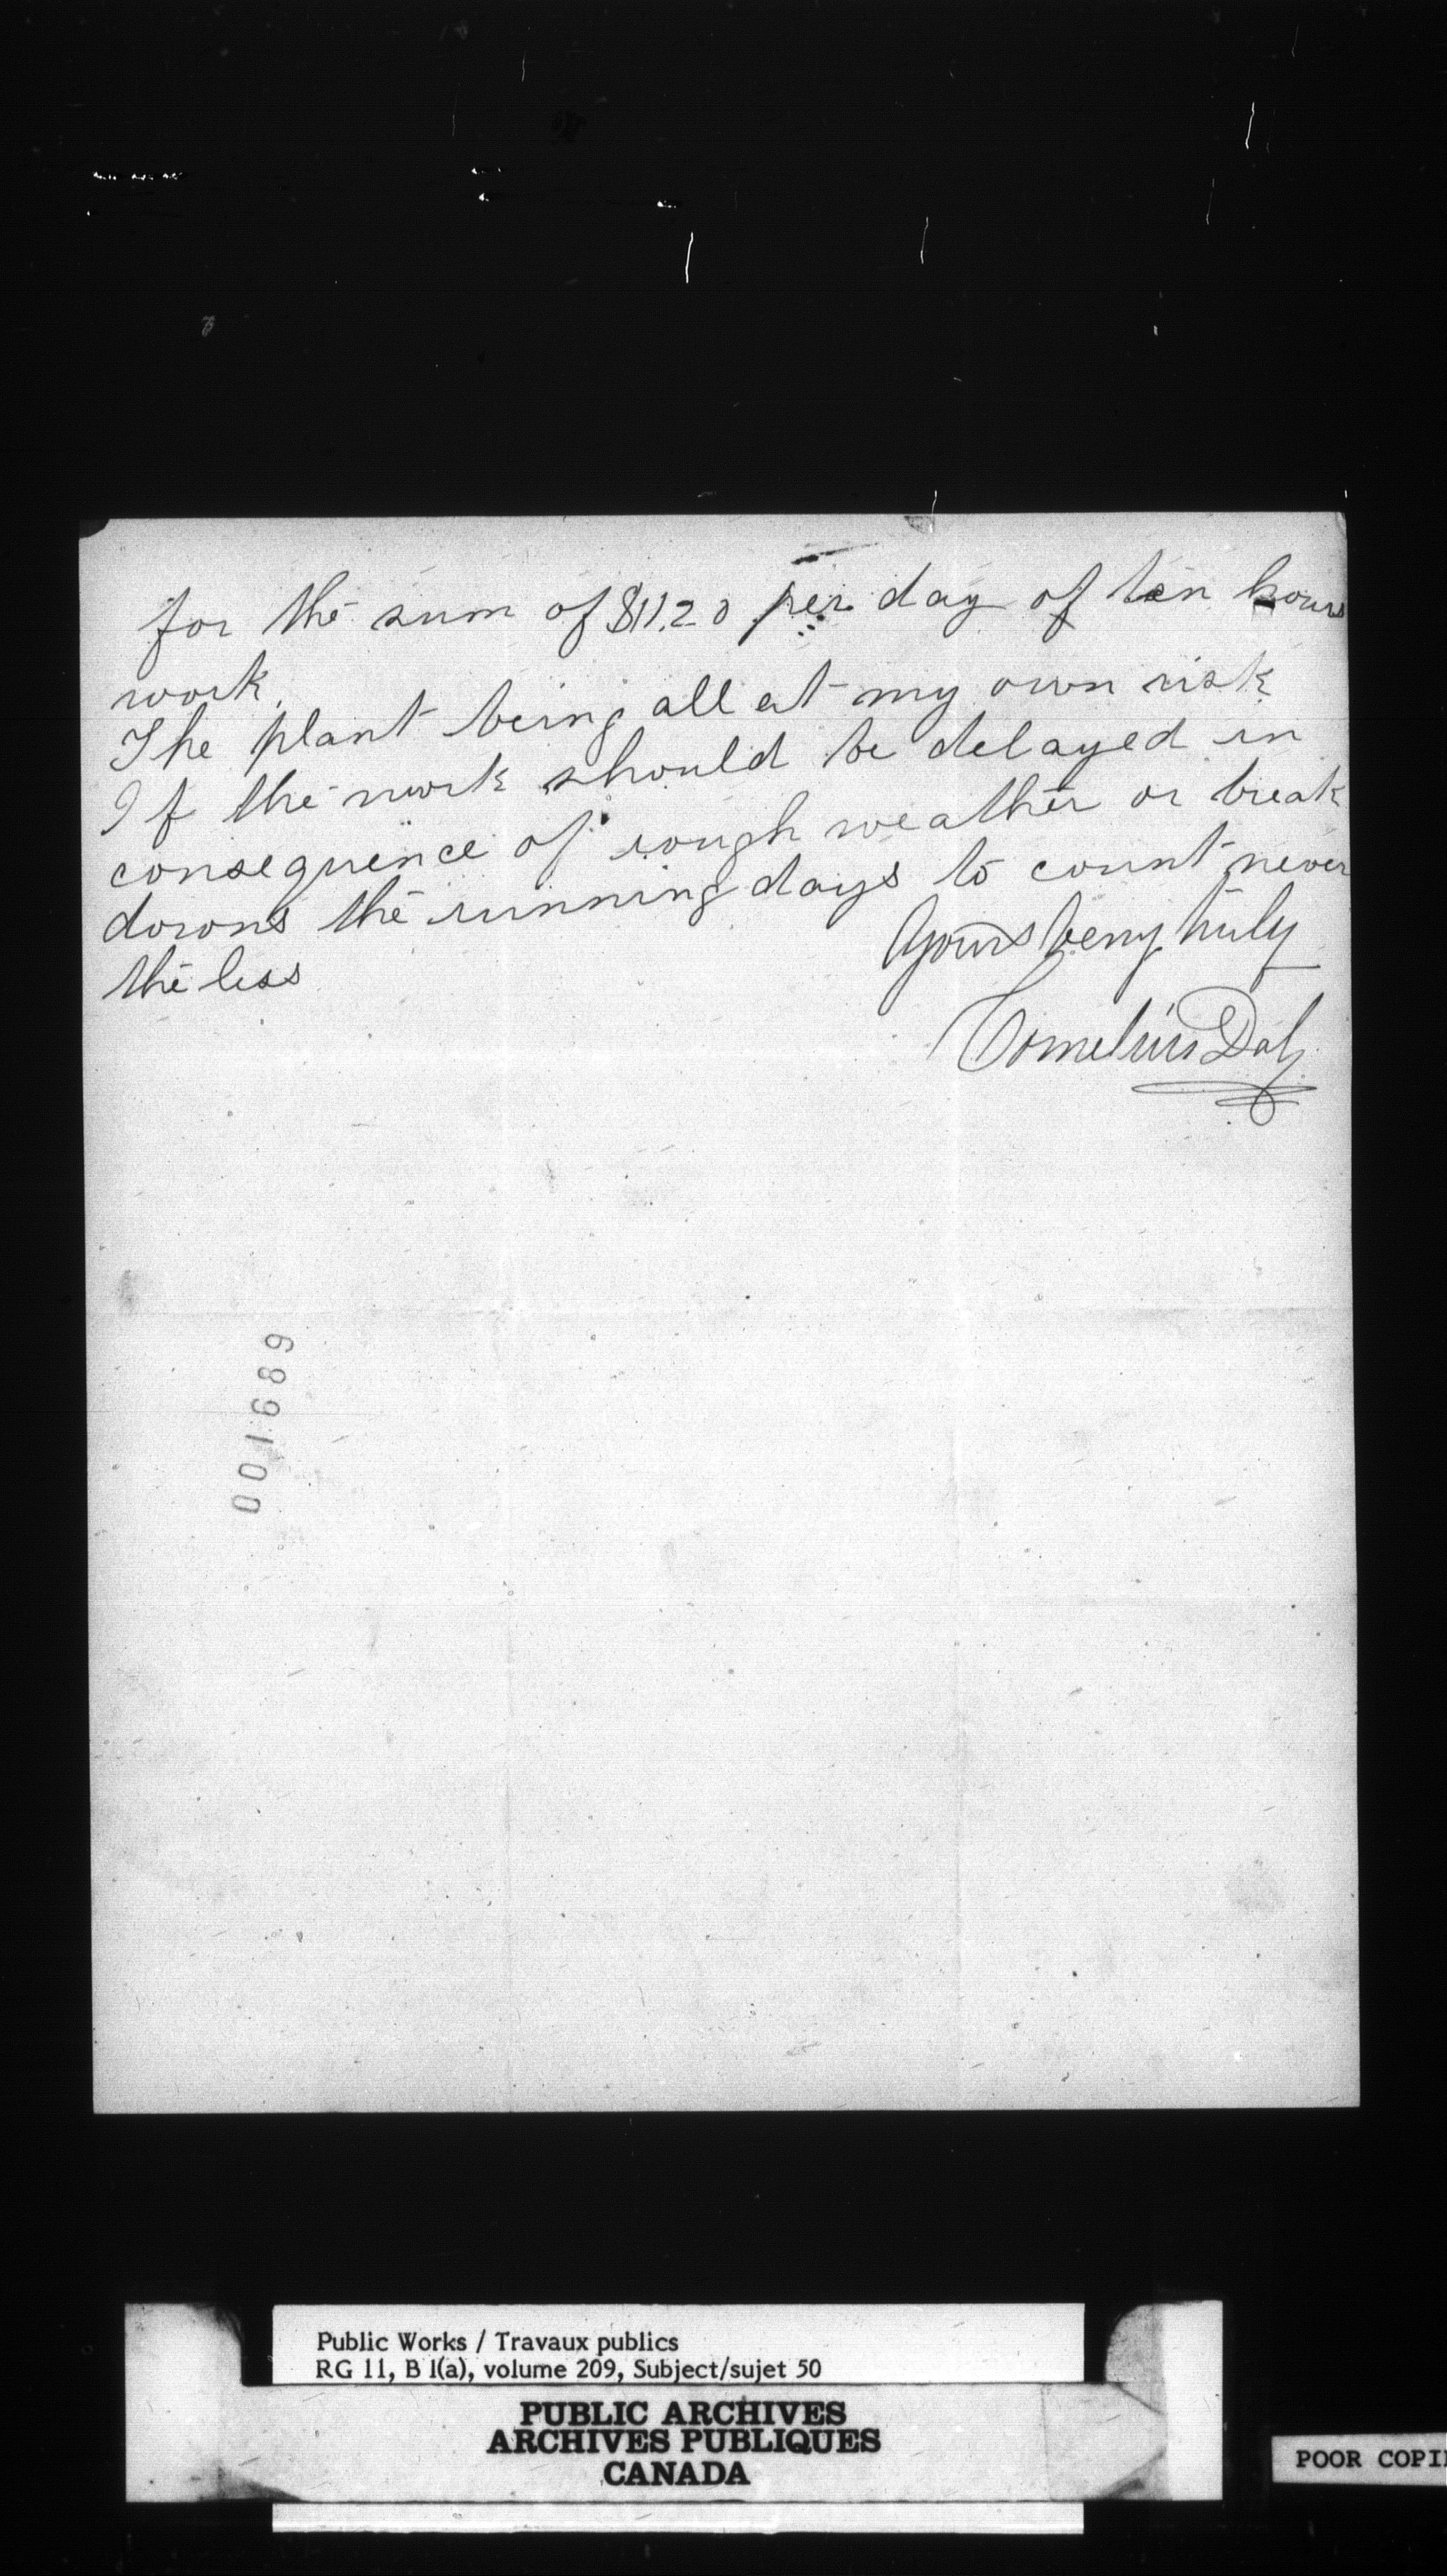 for the sum of $11.20 per day of ten hours
work.
The plant being all at my own risk
If the work should be delayed in
consequence of rough weather or break
downs the running days to count never
the less
Yours very truly
Cornelius Daly
001689
Public Works / Travaux publics
RG 11, B 1(a), volume 209, Subject/sujet 50
PUBLIC ARCHIVES
ARCHIVES PUBLIQUES
CANADA
POOR COPI